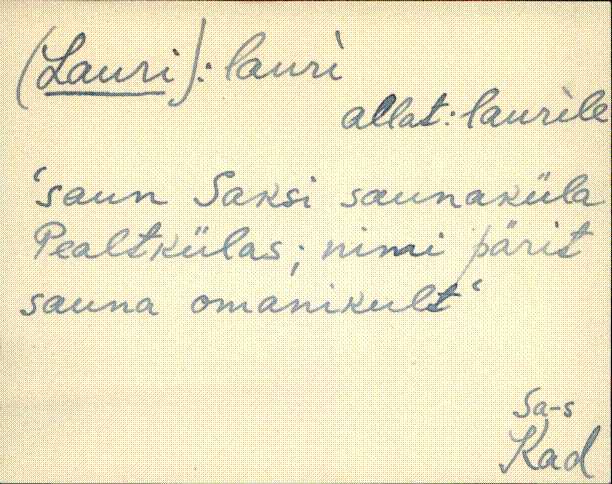 (Lauri): laurì
allat: laurìle
'saun Saksi saunaküla
Pealtkülas; nimi pärit
sauna omanikult'
Sa-s
Kad